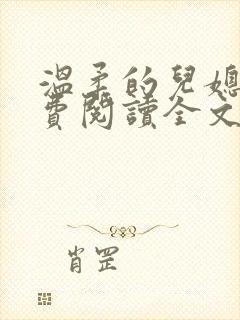 溫柔的兒媳
費閱讀全文
肖罡